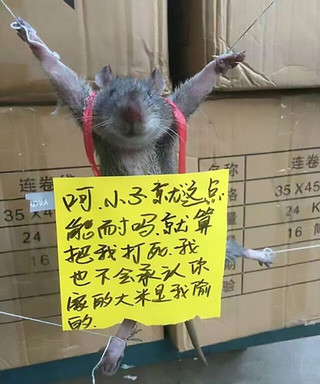 呵.小子就这点
能耐吗.就算
把我打死.我
也不会承认你
家的大米是我偷
的.
连卷袋
35X45
24
16
名称
规格
连卷
35X4
24 K
16